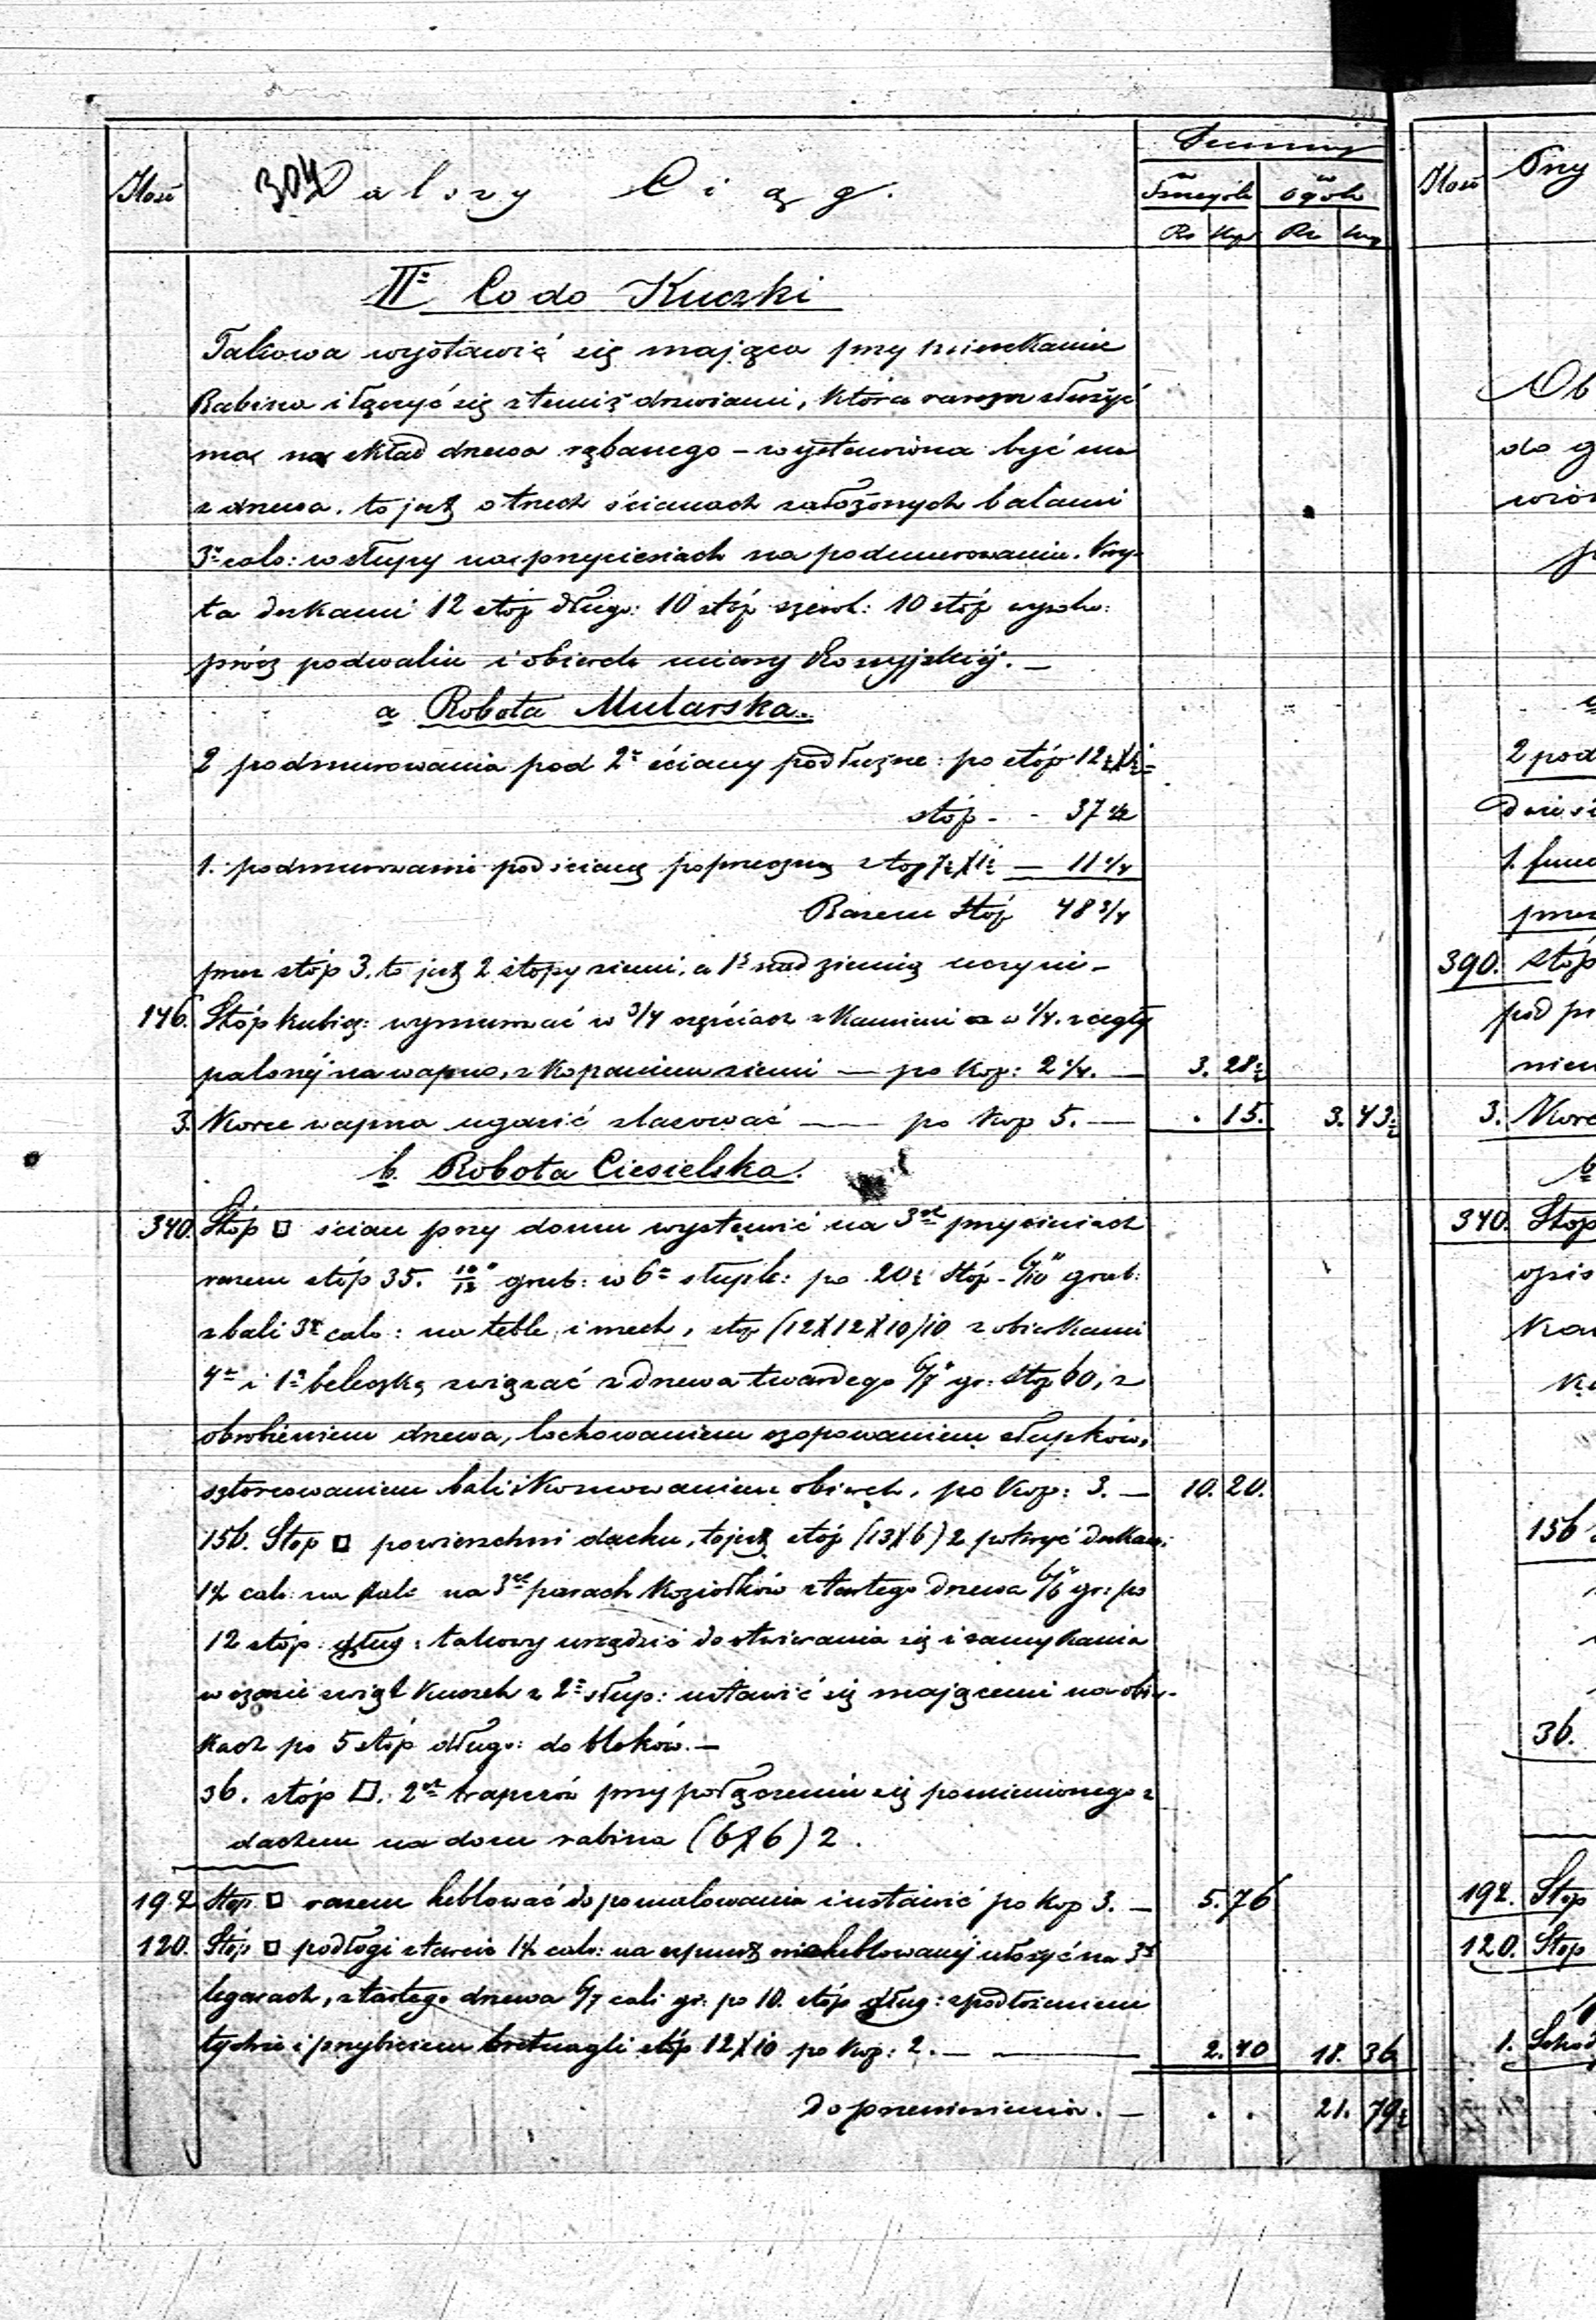 Ilość
304 Dalszy Ciąg.
Summy
w Szczególe
w Ogóle
Rs Kop Rs Kop
II. Co do Kuczki
Takowa wystawić się mająca przy mieszkaniu
Rabina i łączyć się z temiż drzwiami, która razem służyć
ma na skład drzewa rąbanego – wystawiona być ma
z drzewa. to jest o trzech ścianach założonych balami
3 calo: w słupy na przyciesiach na podmurowaniu. Kry-
ta deskami 12 stóp długo: 10 stóp szerok: 10 stóp wysoko:
prócz podwalin i obwich miary Rossyjskiéj. –
a Robota Mularska.
2 podmurowania pod 2 ściany podłużne: po stóp 12½ X 1½ =
stóp - - 37 ½
1. podmurowanie pod ścianę poprzeczną stóp 7½ X 1½ — 11 1/4
Razem Stóp 48 3/4
przez stóp 3. to jest 2 stopy ziemi, a 1 nad ziemią uczyni –
146. Stóp kubicz: wymurować w 3/4 częściach z Kamieni a w 1/4. z cegły
palonéj na wapno, z kopaniem ziemi — po Kop: 2 1/4. — 3. 28½
3. Korce wapna ugasić zlasować —— po Kop 5. — . 15. 3. 43½
b. Robota Ciesielska.
340. Stóp □ ścian przy domu wystawić na 3ch przyciesiach
razem stóp 35. 10/12" grub: w 6 słupk: po 20½ Stóp - 6/10" grub:
z bali 3 calo: na teble i mech, stóp (12X12X10)10 z obwiązkami
4 i 1 beleczką związać z drzewa twardego 6/7" gr: stóp 60, z
obrobieniem drzewa, lochowaniem czopowaniem słupków,
sztorcowaniem bali i Kornowaniem obwich, po Kop: 3. — 10. 20.
156. Stóp □ powierzchni dachu, to jest stóp (13X6) 2 pokryć deskami
1½ calo: na na 3ch parach Koziołków z tartego drzewa 6/6" gr: po
12 stóp: dług: takowy urządzić do otwierania się i zamykania
w czasie świąt Kuczek z 2 słup: ustawić się mającemi na obwiąz-
kach po 5 stóp długo: do bloków. —
36. stóp □. 2ch trapezów przy połączeniu się pomienionego z
dachem na domu rabina (6X6) 2.
192 Stóp □ razem heblować do pomalowania i ustawić po Kop 3. — 5. 76
120. Stóp □ podłogi z tarcic 1½ calo: na szpunt nieheblowanéj ułożyć na 3ch
legarach, z tartego drzewa 6/7 cali gr: po 10. stóp dług: z podłożeniem
tychże i przybiciem bretnagli stóp 12X10 po Kop: 2. — 2. 40 18. 36
do przeniesienia. — . . 21. 79½
Ilość
Przy
Ob
do g
2 pod
1. fund
prze
390. stóp
pod pr
3. Korc
b
340. Stóp
opis
Ka
156
36.
192. Stóp
120. Stóp
1.